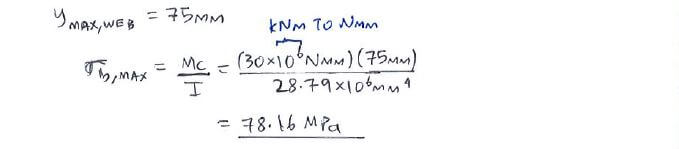 y MAX, WEB = 75MM
KNM TO NMM
σb, MAX = MC/I = (30×10⁶NMM)(75MM) / 28.79×10⁶MM⁴
= 78.16 MPa